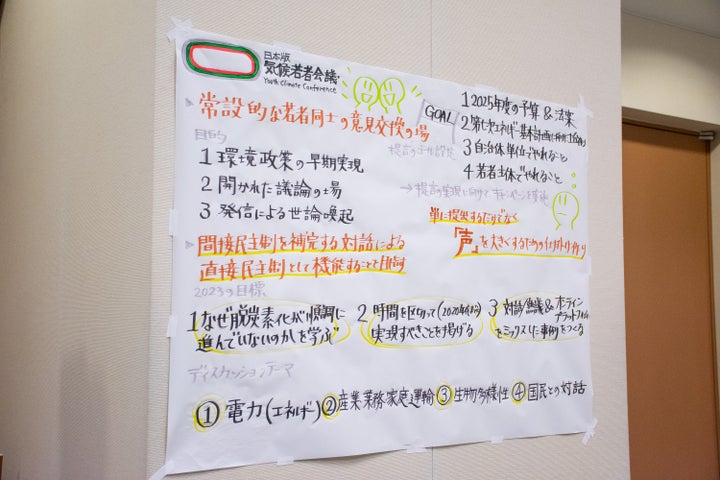 日本版
気候若者会議
Youth Climate Conference
常設的な若者同士の意見交換の場
目的
1 環境政策の早期実現
2 開かれた議論の場
3 発信による世論喚起
間接民主制を補完する対話による
直接民主制として機能することを目指す
GOAL
提言のゴール設定
1 2025年度の予算 & 法案
2 第七次エネルギー基本計画
3 自治体単位でやれること
4 若者主体でやれること
→提言実現に向けてキャンペーンを実施
単に提案するだけでなく
「声」を大きくするための
2023の目標
1 なぜ脱炭素化が順調に
進んでいないのかを学ぶ
2 時間を区切って
実現すべきことを掲げる
3 対話/熟議 & オンライン
プラットフォーム
をミックスした事例をつくる
ディスカッションテーマ
① 電力(エネルギー) ② 産業業務・家庭・運輸 ③ 生物多様性 ④ 国民との対話